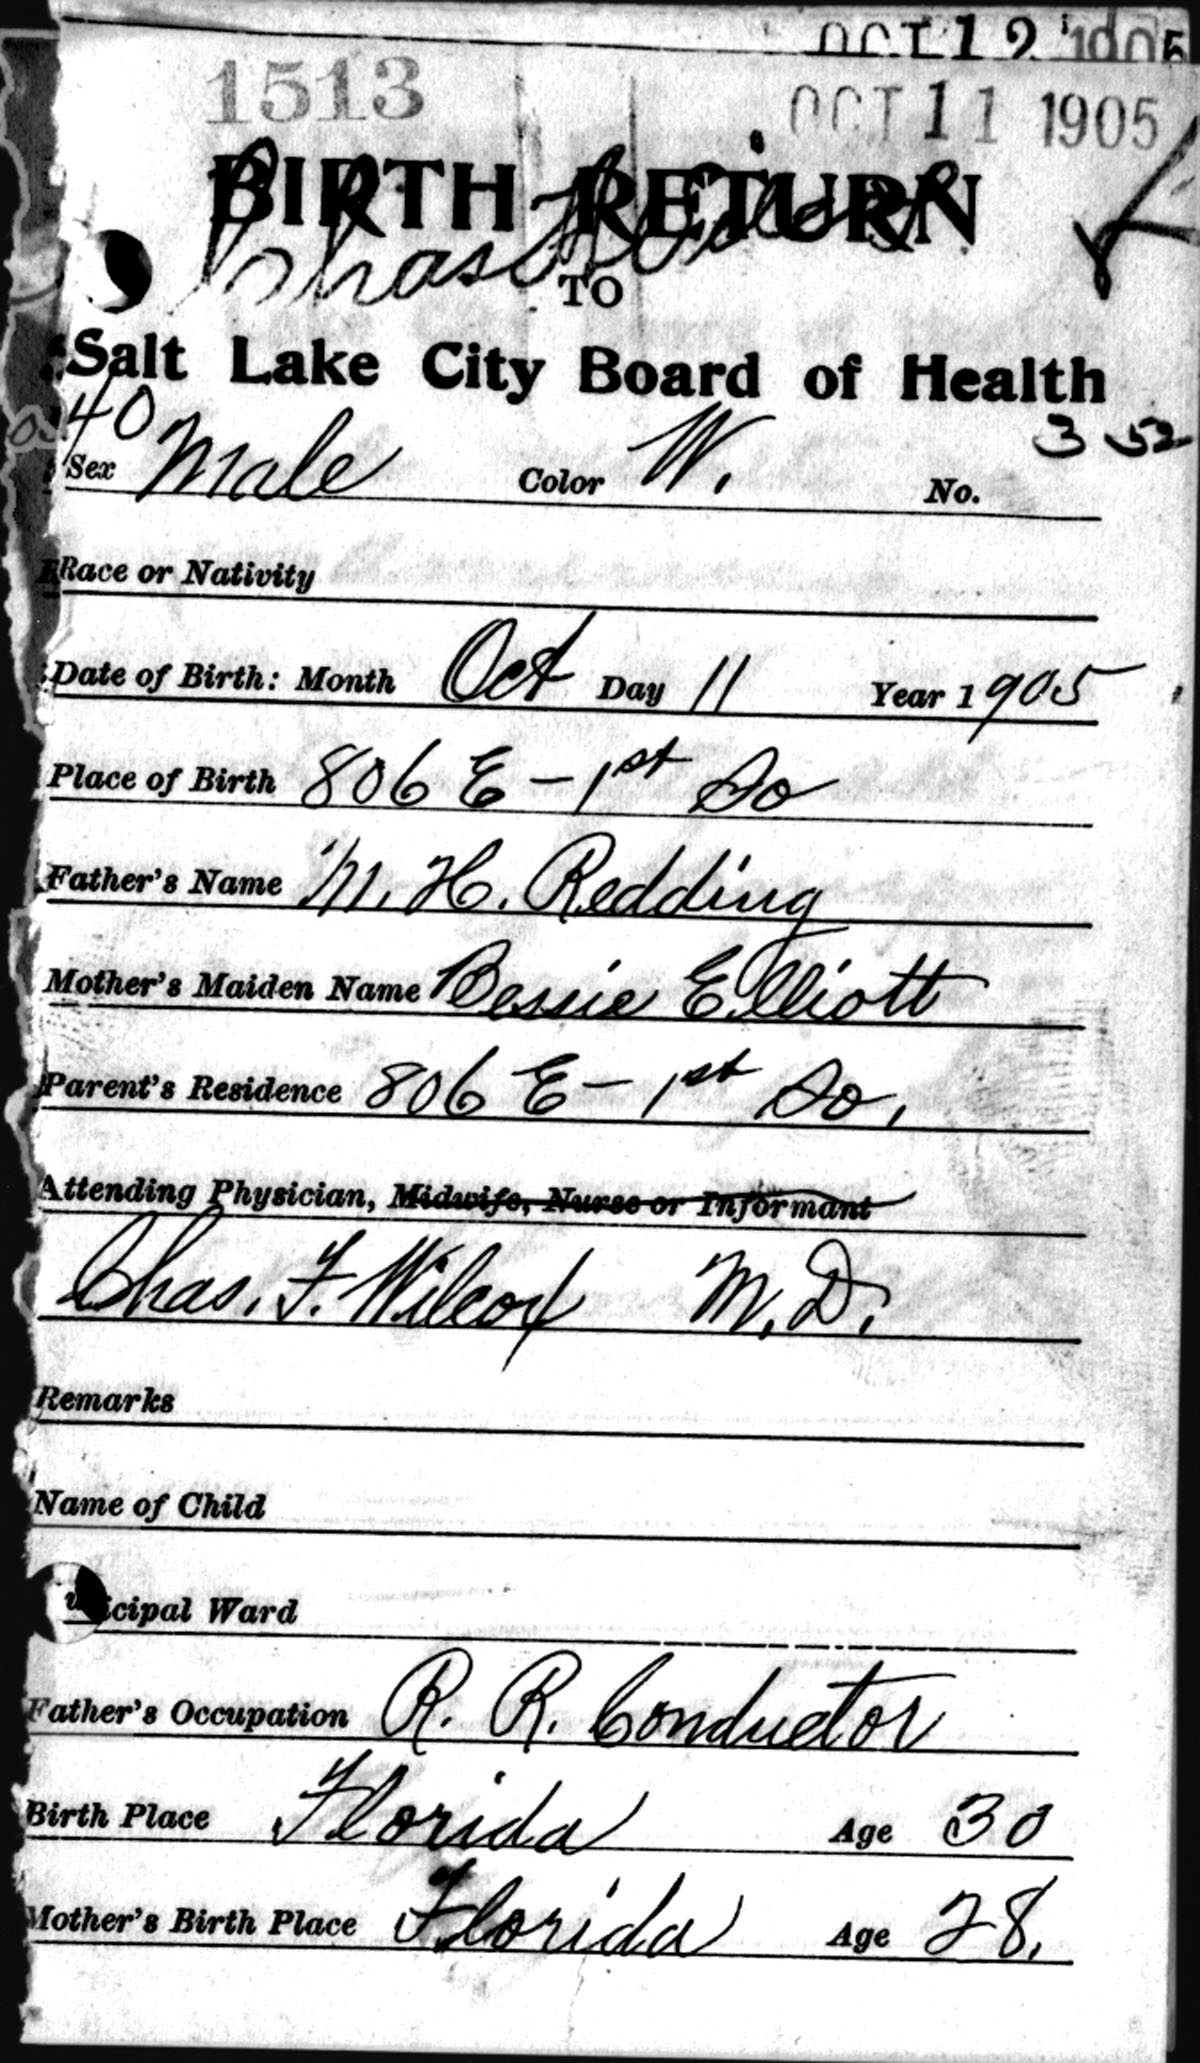 OCT 12 1905
1513 OCT 11 1905
BIRTH RETURN
Chas
TO
Salt Lake City Board of Health
40 352
Sex Male Color W. No.
Race or Nativity
Date of Birth: Month Oct Day 11 Year 1905
Place of Birth 806 E - 1st So
Father's Name M. H. Redding
Mother's Maiden Name Bessie Elliott
Parent's Residence 806 E - 1st So.
Attending Physician, Midwife, Nurse or Informant
Chas. F. Wilcox M.D.
Remarks
Name of Child
icipal Ward
Father's Occupation R. R. Conductor
Birth Place Florida Age 30
Mother's Birth Place Florida Age 28.